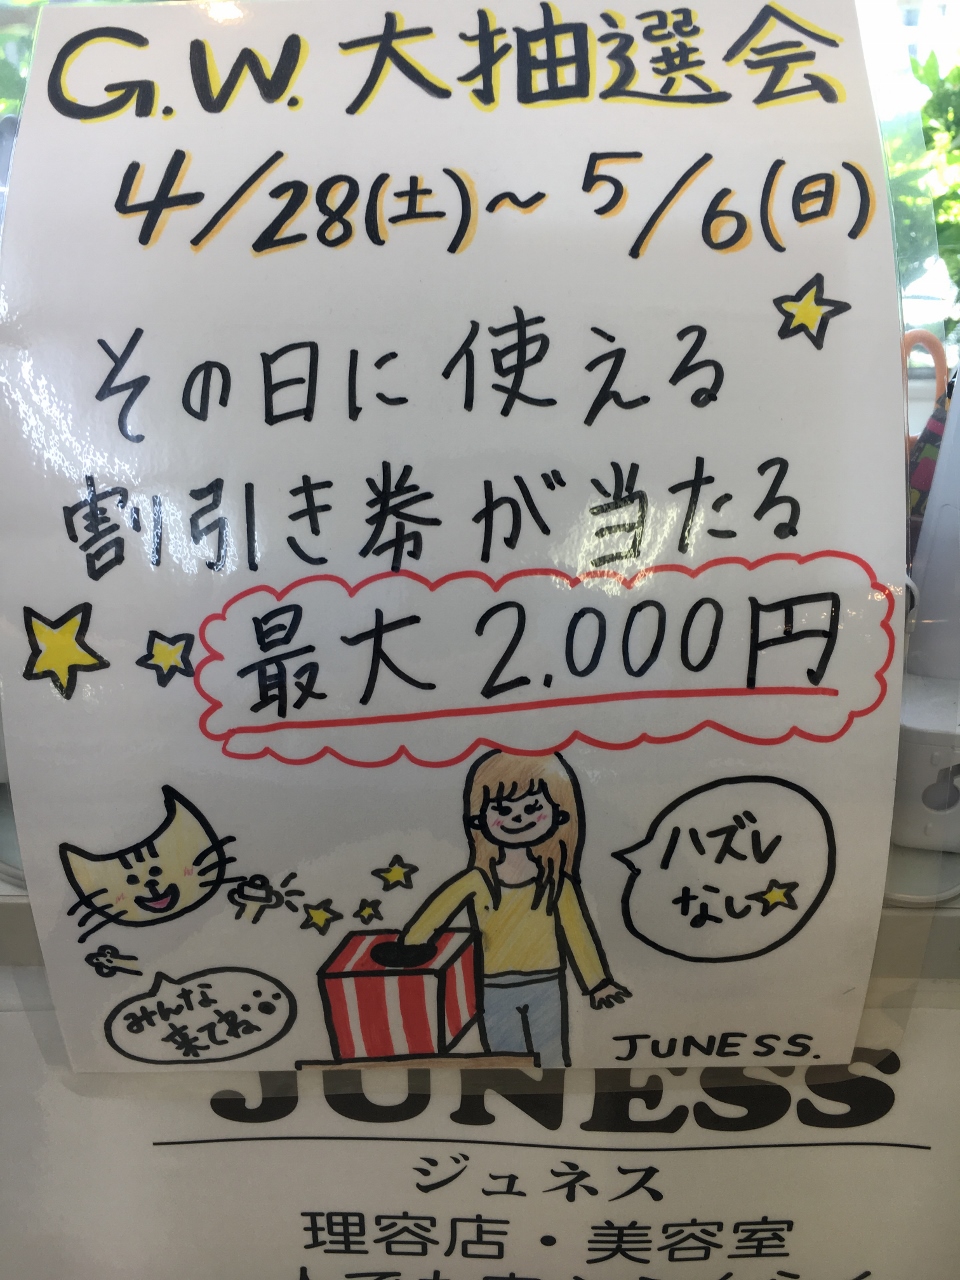 G.W. 大抽選会
4/28(土)~5/6(日)
その日に使える
割引き券が当たる
最大2.000円
ハズレ
なし
みんな
来てね
JUNESS.
JUNESS
ジュネス
理容店・美容室